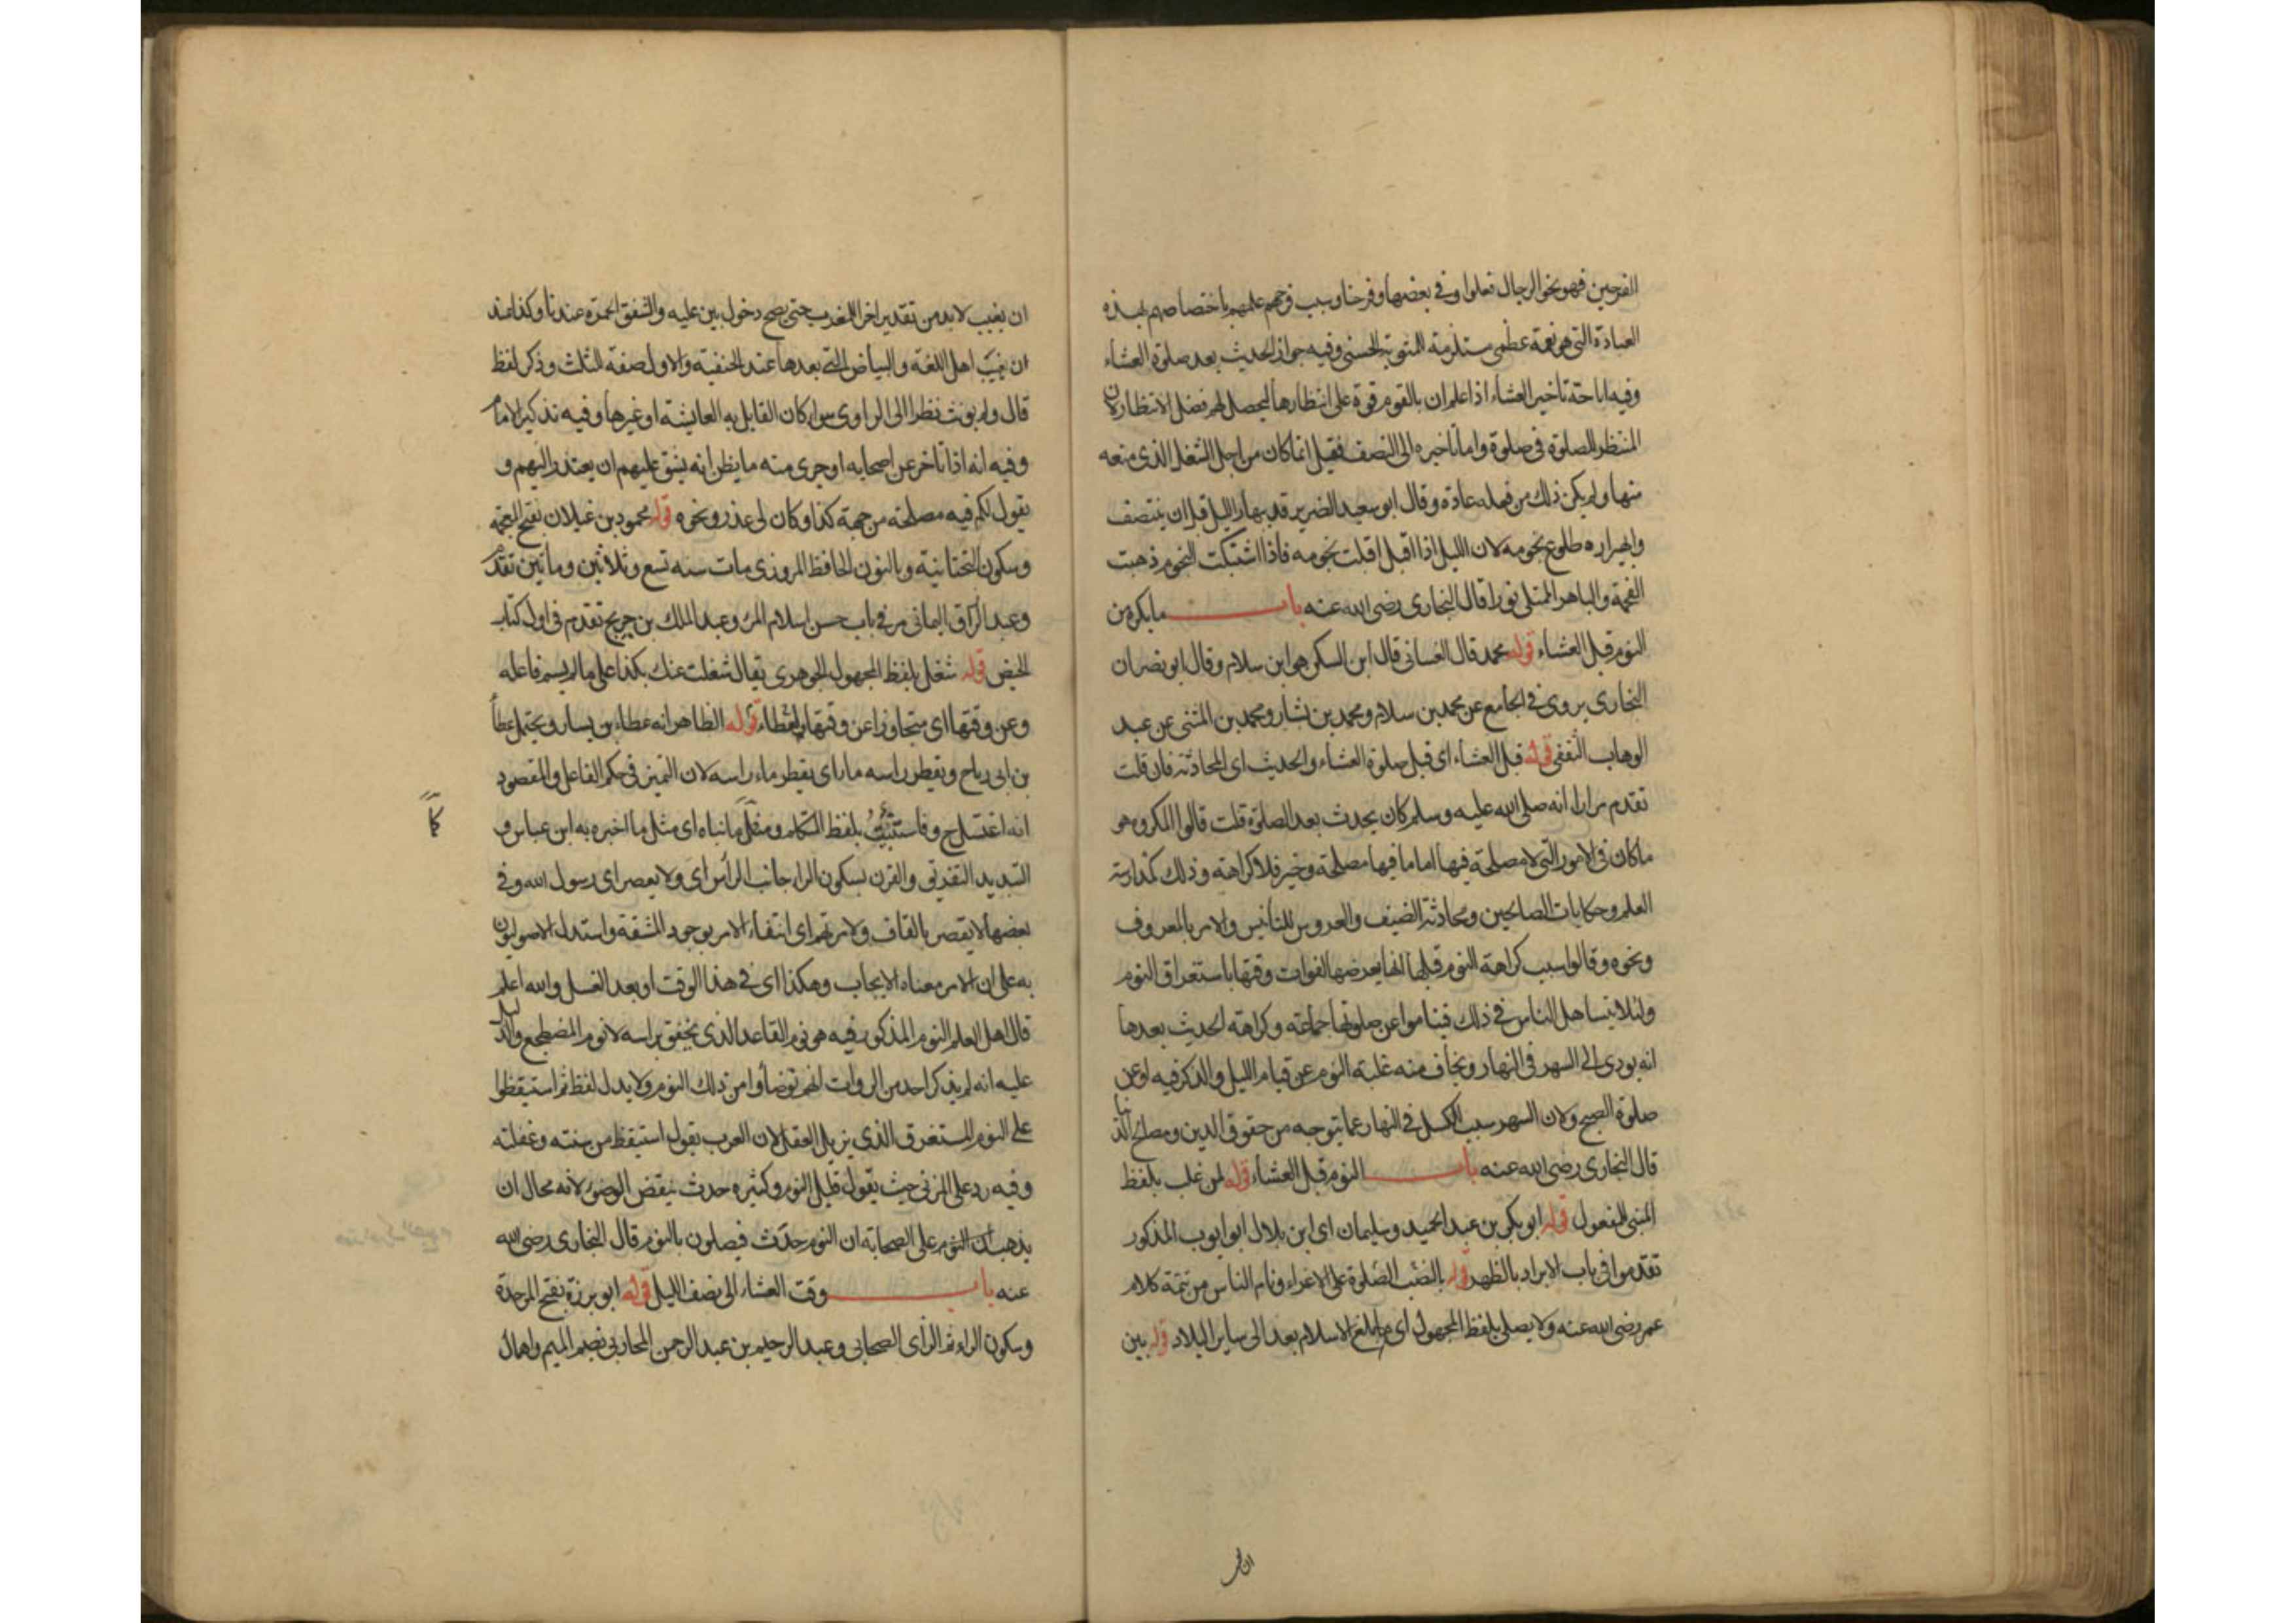 الفرحين فهو نحو الرجال فعلوا وفي بعضها وفرحنا وسبب فرحهم علمهم باختصاصهم بهذه
العبادة التي هو نعمة عظمى مستلزمة للمثوبة الحسنى وفيه جواز الحديث بعد صلوة العشاء
وفيه اباحة تأخير العشاء اذا علم ان بالقوم قوة على انتظارها ليحصل لهم فضل الانتظار لان
المنتظر للصلوة في صلوة واما تأخيره الى النصف فقيل انما كان من اجل الشغل الذي منعه
منها ولم يكن ذلك من فعله عادة وقال ابو سعيد الضرير قد يبهار الليل قبل ان ينتصف
وابهيراره طلوع نجومه لان الليل اذا اقبل اقبلت نجومه فاذا اشتبكت النجوم ذهبت
الفحمة والباهر الممتلى نورا قال البخاري رضي الله عنه باب ما يكره من
النوم قبل العشاء قوله محمد قال الغساني قال ابن السكن هو ابن سلام وقال ابو نصر ان
البخاري يروى في الجامع عن محمد بن سلام ومحمد بن بشار ومحمد بن المثنى عن عبد
الوهاب الثقفى قوله قبل العشاء اى قبل صلوة العشاء والحديث اى المحادثة فان قلت
تقدم مرارا انه صلى الله عليه وسلم كان يحدث بعد الصلوة قلت قالوا المكروه هو
ما كان في الامور التي لا مصلحة فيها اما ما فيها مصلحة وخير فلا كراهة وذلك كمدارسة
العلم وحكايات الصالحين ومحادثة الضيف والعروس للتأنيس والامر بالمعروف
ونحوه وقالوا سبب كراهة النوم قبلها انها يعرضها لفوات وقتها باستغراق النوم
ولئلا يتساهل الناس في ذلك فيناموا عن صلوتها جماعة وكراهة الحديث بعدها
انه يودى الى السهر في النهار ويخاف منه غلبة النوم عن قيام الليل والذكر فيه او عن
صلوة الصبح ولان السهر سبب الكسل في النهار عما يتوجه من حقوق الدين ومصالح الدنيا
قال البخاري رضي الله عنه باب النوم قبل العشاء قوله لمن غلب بلفظ
المبنى للمفعول قوله ابو بكر بن عبد الحميد وسليمان اى ابن بلال ابو ايوب المذكور
تقدموا في باب الابراد بالظهر قوله بالنصب الصلوة على الاغراء ونام الناس من تتمة كلام
عمر رضي الله عنه ولا يصلى بلفظ المجهول اى ما بلغ الاسلام بعد الى ساير البلاد قوله بين
ان يغيب لابد من تقدير اخر للمغرب حتى يصح دخول بين عليه والشفق الحمرة عندنا وكذا عند
اهل اللغة والبياض التي بعدها عند الحنفية والاول صفة الثلث وذكر لفظ
قال ولم يونث نظرا الى الراوى سواء كان القايل به العايشة او غيرها وفيه تذكير الامام
وفيه انه اذا تاخر عن اصحابه او جرى منه ما يظن انه يشق عليهم ان يعتذر اليهم و
يقول لكم فيه مصلحة من جهة كذا وكان لى عذر ونحوه قوله محمود بن غيلان بفتح المعجمة
وسكون التحتانية وبالنون الحافظ المروزى مات سنه تسع وثلاثين ومأتين تقدم
وعبد الرزاق اليمانى مر في باب حسن اسلام المرء وعبد الملك بن جريج تقدم في اول كتاب
الحيض قوله شغل بلفظ المجهول الجوهرى يقال شغلت عنك بكذا على ما لم يسم فاعله
وعن وقتها اى متجاوزا عن وقتها لعطاء قوله الظاهر انه عطاء بن يسار ويحتمل عطاء
بن ابى رباح ويقطر راسه ماء اى يقطر ماء راسه لان التميز في حكم الفاعل والمقصود
انه اغتسل ح و فاستثبت بلفظ المتكلم ما انباه اى مثل ما اخبره به ابن عباس و
كما
التبديد التفريق والقرن بسكون الراء جانب الرأس اى ولا يعصر اى رسول الله وفي
بعضها لا يقصر بالقاف ولامرتهم اى انتفاء الامر بوجود المشقة واستدل الاصوليون
به على ان الامر معناه الايجاب وهكذا اى في هذا الوقت او بعد الغسل والله اعلم
قال اهل العلم النوم المذكور فيه هو نوم القاعد الذى يخفق براسه لا نوم المضطجع والدليل
عليه انه لم يذكر احد من الروات انهم توضأوا من ذلك النوم ولا يدل لفظ ثم استيقظوا
على النوم المستغرق الذي يزيل العقل لان العرب يقول استيقظ من سنته وغفلته
وفيه رد على المزنى حيث يقول قليل النوم وكثيره حدث ينقض الوضوء لانه محال ان
يذهب على الصحابة ان النوم حدث فيصلون بالنوم قال البخارى رضى الله
عنه باب وقت العشاء الى نصف الليل قوله ابو برزة بفتح الموحدة
وسكون الراء ثم الزاى الصحابى وعبد الرحيم بن عبد الرحمن المحاربى بضم الميم واهمال